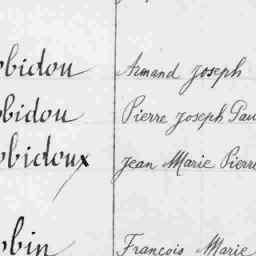 obidou Armand Joseph
obidou Pierre Joseph Pau
obidoux Jean Marie Pierre
obin François Marie